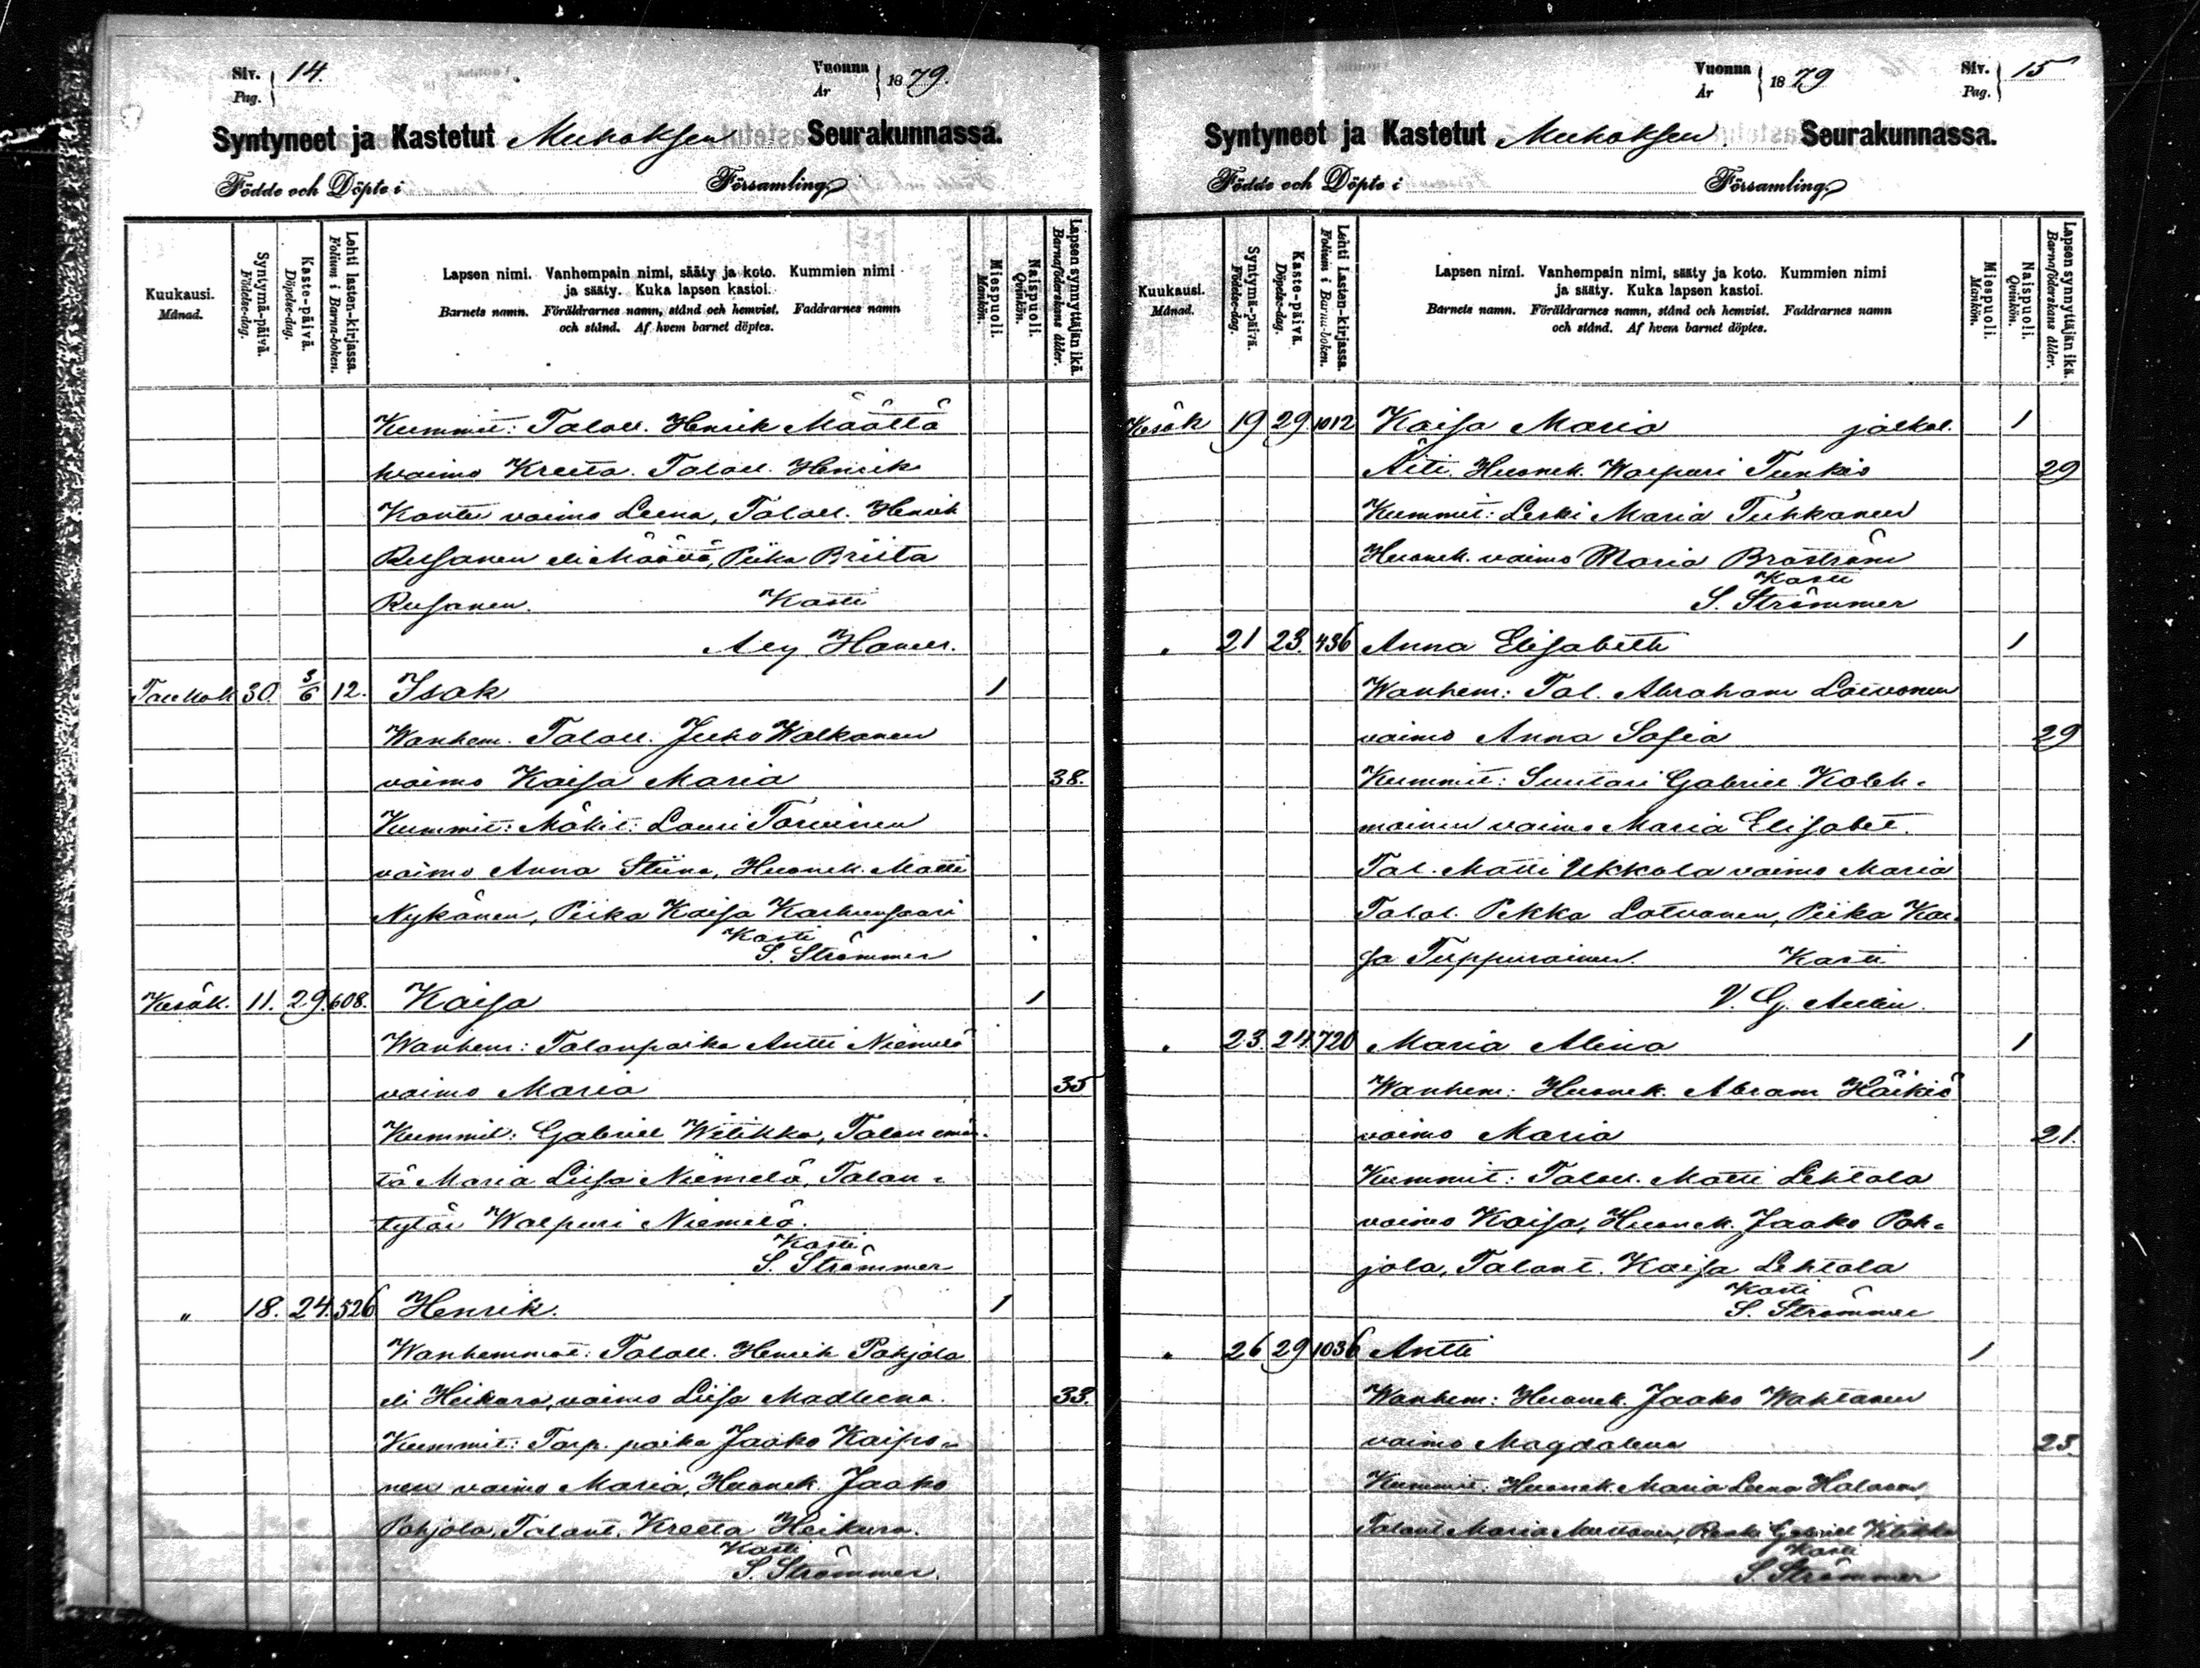 Siv. 14.
Pag.
Vuonna 1879.
År
Syntyneet ja Kastetut Muhoksen Seurakunnassa.
Födde och Döpte i Församling.
Kuukausi. Månad.
Syntymä-päivä. Födelse-dag.
Kaste-päivä. Döpelse-dag.
Lehti lasten-kirjassa. Folium i Barna-boken.
Lapsen nimi. Vanhempain nimi, sääty ja koto. Kummien nimi
ja sääty. Kuka lapsen kastoi.
Barnets namn. Föräldrarnes namn, stånd och hemvist. Faddrarnes namn
och stånd. Af hvem barnet döptes.
Miespuoli. Mankön.
Naispuoli. Qvinkön.
Lapsen synnyttäjän ikä. Barnaföderskans ålder.
Kummit: Taloll. Henrik Määttä
waimo Kreeta. Taloll. Henrik
Kontu vaimo Leena, Taloll. Henrik
Reusanen eli Määttä, Piika Briita
Reusanen. Kasti
Toukok 30. 3/6 12. Isak 1
Wanhem. Taloll. Juho Walkonen
vaimo Kaisa Maria 38.
Kummit: Mökit: Lauri Toivinen
vaimo Anna Stiina, Huonek. Matti
Nykänen, Piika Kaisa Karhunsaari
Kasti
S. Strömmer
Kesäk. 11. 29. 608. Kaisa 1
Wanhem: Talonpoika Antti Niemelä
vaimo Maria 35
Kummit: Gabriel Witikka, Talon emän-
tä Maria Liisa Niemelä, Talon-
tytär Walpuri Niemelä.
Kasti
S. Strömmer
" 18. 24. 526 Henrik. 1
Wanhemmat: Taloll. Henrik Pohjola
eli Heikura, vaimo Liisa Madleena. 33.
Kummit: Torp. poika Jaako Kaipo-
nen vaimo Maria, Huonek. Jaako
Pohjola, Talont. Kreeta Heikura.
Kasti
S. Strömmer.
Vuonna 1879
År
Siv. 15
Pag.
Syntyneet ja Kastetut Muhoksen Seurakunnassa.
Födde och Döpte i Församling.
Kuukausi. Månad.
Syntymä-päivä. Födelse-dag.
Kaste-päivä. Döpelse-dag.
Lehti Lasten-kirjassa. Folium i Barna-boken.
Lapsen nimi. Vanhempain nimi, sääty ja koto. Kummien nimi
ja sääty. Kuka lapsen kastoi.
Barnets namn. Föräldrarnes namn, stånd och hemvist. Faddrarnes namn
och stånd. Af hvem barnet döptes.
Miespuoli. Mankön.
Naispuoli. Qvinkön.
Lapsen synnyttäjän ikä. Barnaföderskans ålder.
Kesäk 19 29 1012 Kaisa Maria jalkal. 1
Äiti. Huonek. Walpuri Tunkio 29
Kummit: Leski Maria Tuhkanen
Huonek. vaimo Maria Broström
Kasti
S. Strömmer
" 21 23. 436 Anna Elisabeth 1
Wanhem: Tal. Abraham Loivonen
vaimo Anna Sofia 29
Kummit: Suutari Gabriel Koleh-
mainen vaimo Maria Elisabet.
Tal. Matti Ukkola vaimo Maria
Talol. Pekka Lotvonen, Piika Kai-
sa Tuppurainen. Kasti
" 23. 24 720 Maria Alina 1
Wanhem: Huonek. Abram Häikiö
vaimo Maria 21.
Kummit: Taloll. Matti Lehtola
vaimo Kaisa, Huonek. Jaako Poh-
jola, Talont. Kaisa Lehtola
Kasti
S. Strömmer
" 26 29 1036 Antti 1
Wanhem: Huonek. Jaako Wahtanen
vaimo Magdalena 23
Kummit: Huonek. Maria Leena
Talont Maria Gabriel Witikka
Kasti
S. Strömmer